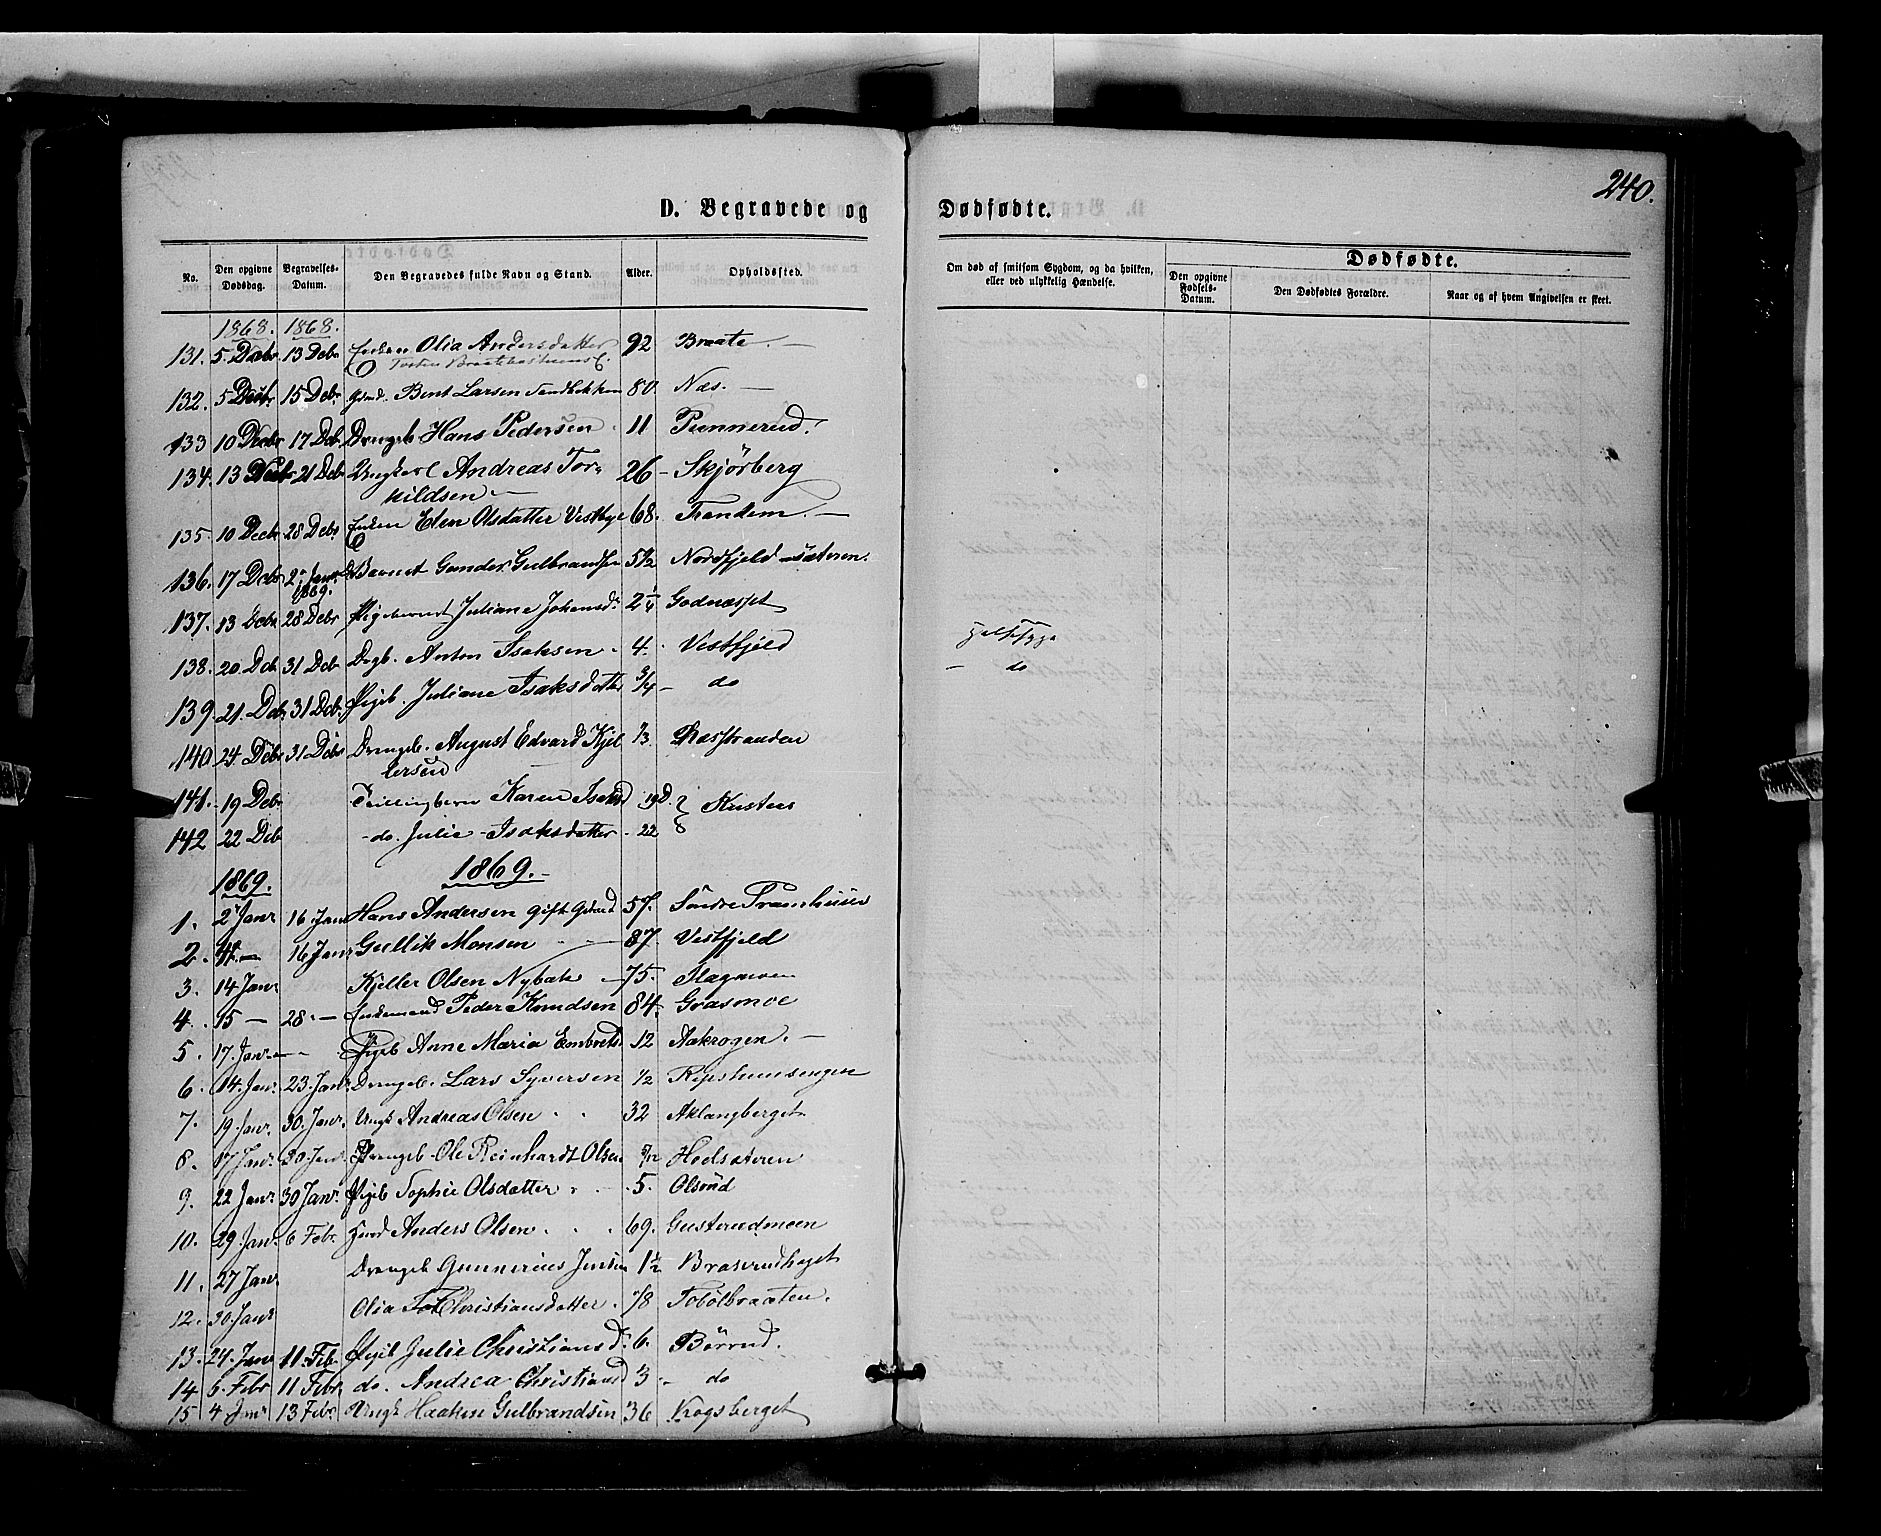 240.
D. Begravede og Dødfødte.
No. Den opgivne Dødsdag. Begravelses-Datum. Den Begravedes fulde Navn og Stand. Alder. Opholdssted. Om død af smitsom Sygdom, og da hvilken, eller ved ulykkelig Hændelse. Dødfødte.
Den opgivne Fødsels-Datum. Den Dødfødtes Forældre. Naar og af hvem Angivelsen er skeet.
1868. 1868.
131. 5. Decbr 13 Debr Enken Olia Andersdatter 92 Braate. —
132. 5 Decbr. 15 Debr. Gmd. Bent Larsen Sandbekken 80. Næs. —
133 10 Decbr 17 Deb. Drengeb Hans Pedersen 11 Punnerud.
134. 13 Decbr 21 Debr Ungkarl Andreas Tor- 26 - Skjörberg
kildsen —
135. 10 Decbr 28 Debr Enken Elen Olsdatter Vestbye 68. Trandem. —
136. 17 Debr 2 Janr Barnet Gunder Gulbrandsen 5 1/2 Nordfjeldsæteren.
1869.
137. 13 Debr 28 Debr Pigebarnet Juliane Johansd. 2 1/4 Godnæsset
138. 20. Deb. 31 Deb Drgb. Anton Isaksen 4. Vestfjeld
139. 21. Deb. 31 Deb. Pigeb. Juliane Isaksdatter 3/4 - do — do
140 24. Debr 31 Debr Drengeb. August Edvard Kjel 1/3. Næsstranden
lersen
141. 19 Debr Tvillingbarn Karen Isaksd 19 D. Knsten
142 22 Deb - do. Julie Isaksdatter 22
1869. 1869. -
1. 2 Janr 16 Janr Hans Andersen gift Gbrd 57. Söndre Tranhuus
2. 4. — 16 Janr Gullik Monsen 87. Vestfjeld
3. 14 Janr. Kjeller Olsen Nybak 75. Slagmoen
4. 15 — 28 — Enkemand Peder Knudsen 84. Grasmoe
5. 17. Janr. — Pigeb Anne Maria Embretsd. 12 Aakrogen. —
6. 14. Janr. 23. Janr. Drengeb. Lars Syversen 1/2 Kipshuusengen
7. 19 Janr. 30. Janr. Ungk Andreas Olsen 32 Aklangberget
8. 17 Janr. 30. Janr. Drengeb Ole Reinhardt Olsen /12 Hodsæteren
9. 22 Janr. 30 Janr. Pigeb Sophie Olsdatter 5. Olsrud
10. 29 Janr. 6 Febr. Anders Olsen 69. Gusterudmoen
11. 27 Janr Drengeb Gunnerius Jensen 1 1/2 Braserudhaget
12. 30 Janr Olia Christiansdatter. 1/8 Tobölbraaten.
13. 24. Janr 11. Feb. Pigeb Julie Christiansd. 6. Börrud.
14 6. Febr 11 Febr do. Andrea Christiansd 3 - do
15 4 Janr 13 Febr. Ungk Haaken Gulbrandsen 36 Krogsberget